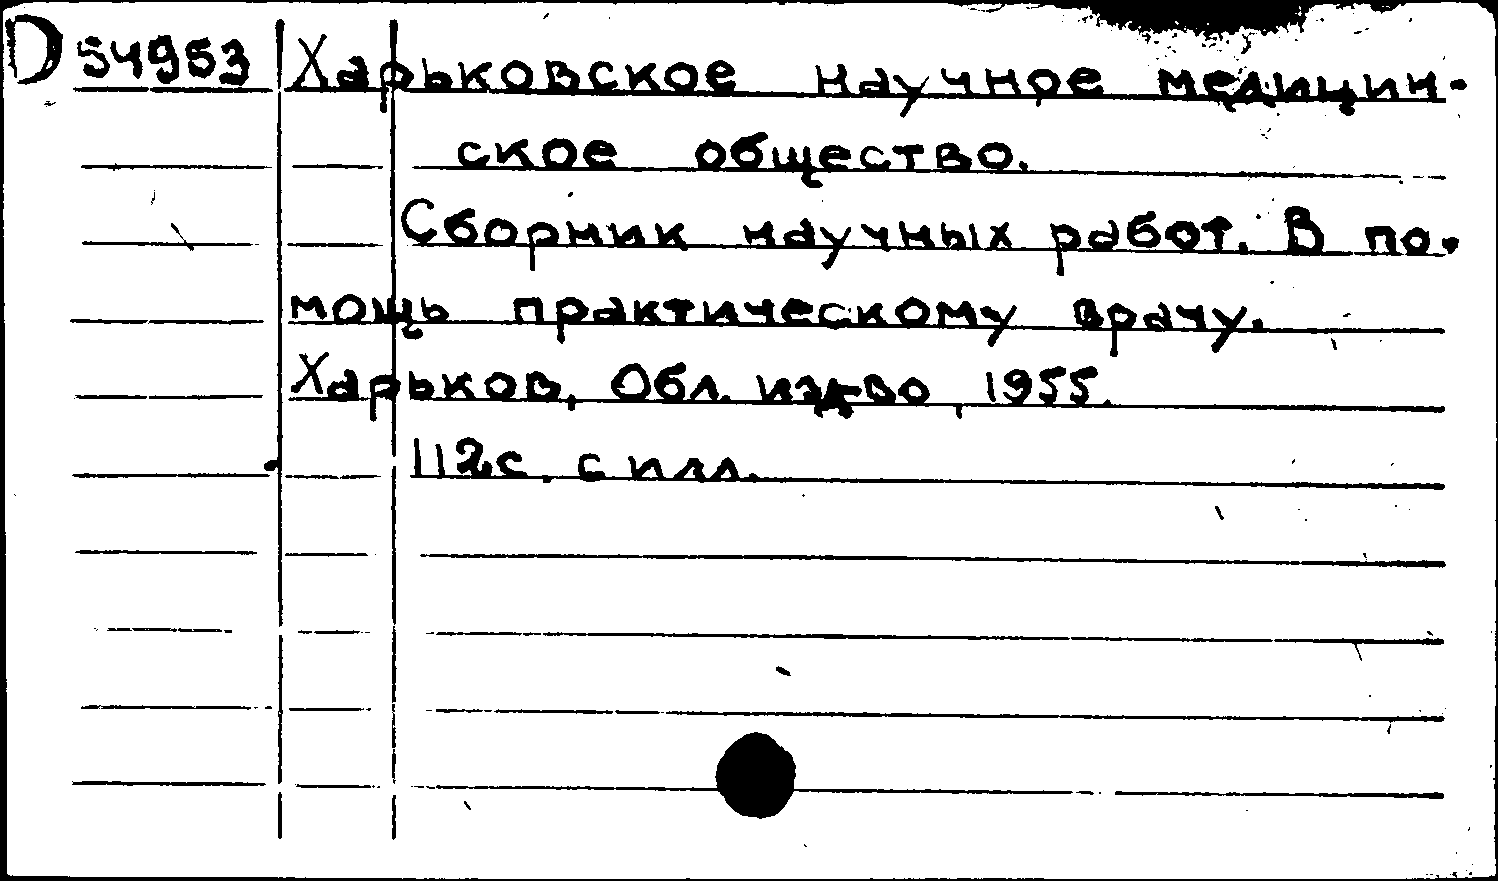 D 54953 Харьковское научное медицин-
ское общество.
Сборник научных работ. В по-
мощь практическому врачу.
Харьков, Обл. изд-во, 1955.
112с. с илл.